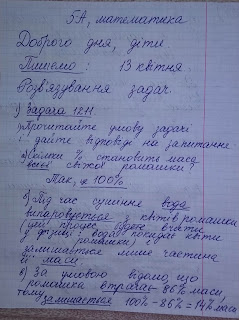 5А, математика
Доброго дня, діти
Пишемо: 13 квітня
Розв'язування задач
1) Задача 1211.
а) Прочитайте умову задачі
і дайте відповіді на запитання:
Скільки % становить маса
всієї свіжої ромашки?
Так, 100%
б) Під час сушіння вода
випаровується з квітів ромашки
(цей процес будете вчити
у фізиці: вода покидає квіти
ромашки) і
залишається лише частина
її маси
в) За умовою відомо, що
ромашка втрачає 86% маси
тому залишається 100% - 86% = 14% маси